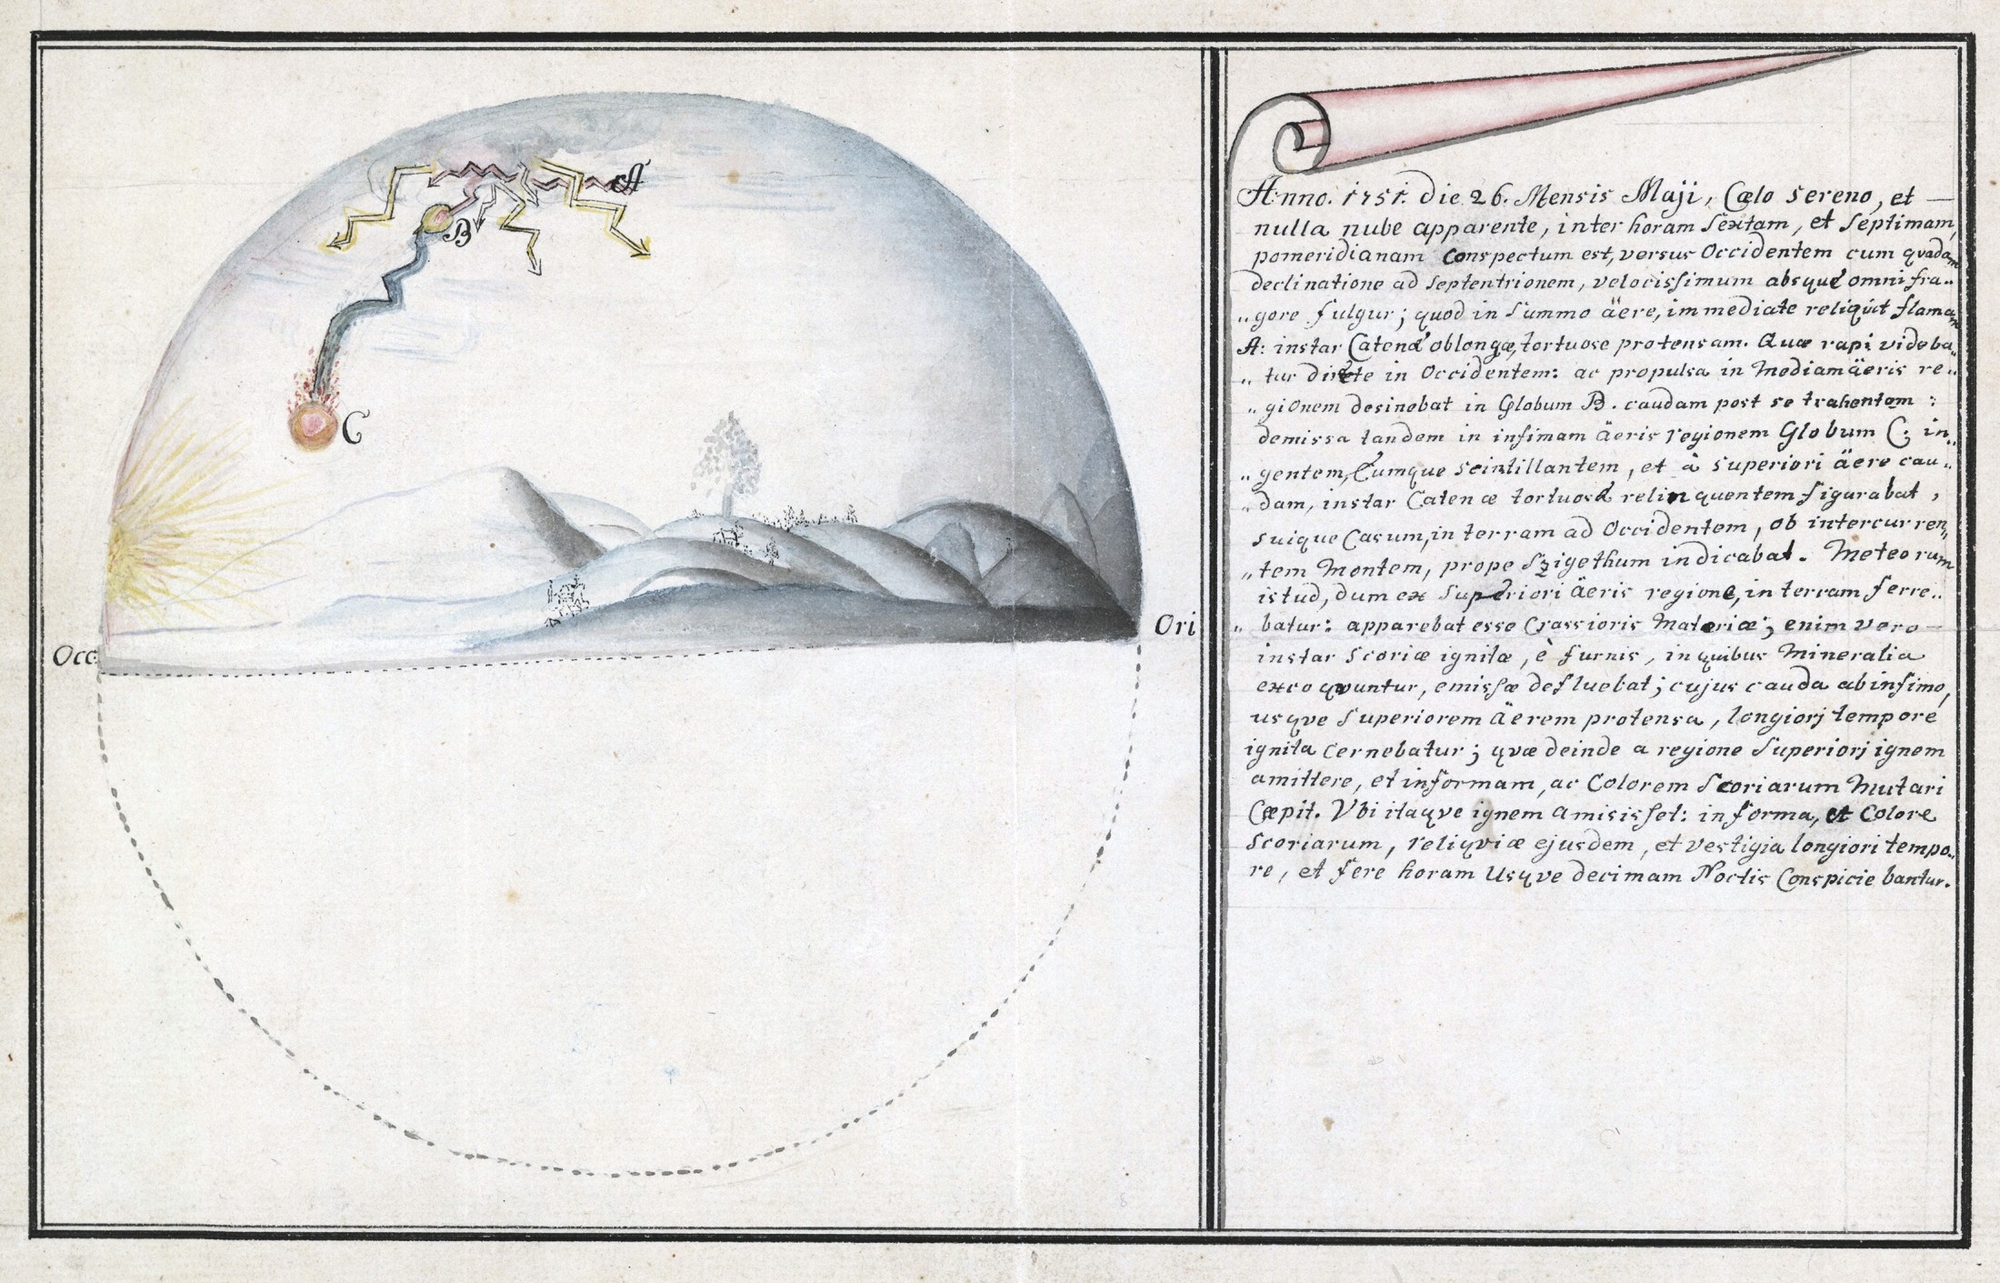 A
B
C
Occ
Ori
Anno. 1751. die 26. Mensis Maji, Cœlo sereno, et —
nulla nube apparente, inter horam sextam, et septimam,
pomeridianam Conspectum est, versus Occidentem cum qvadam
declinatione ad Septentrionem, velocissimum absque omni fra„
„gore fulgur; quod in summo äere, immediate reliquit flamam
A: instar Catenæ oblongæ, tortuose protensam. Quæ rapi videba„
„tur directe in Occidentem: ac propulsa in Mediam äeris re„
„gionem desinebat in Globum B. caudam post se trahentem:
demissa tandem in infimam äeris regionem Globum C. in„
„gentem, Eumque scintillantem, et à superiori äere cau„
„dam, instar Catenæ tortuosæ relinquentem figurabat,
suique Casum, in terram ad Occidentem, ob intercurren„
„tem Montem, prope Szigethum indicabat. Meteorum
istud, dum ex superiori äeris regione, in terram ferre„
„batur: apparebat esse Crassioris Materiæ; enim vero —
instar scoriæ ignitæ, è furnis, in quibus Mineralia
excoqvuntur, emissæ defluebat; cujus cauda ab infimo,
usqve superiorem äerem protensa, longiorj tempore
ignita cernebatur; qvæ deinde a regione superiorj ignem
amittere, et in formam, ac Colorem Scoriarum Mutari
Cœpit. Vbi itaqve ignem amisisset: in forma, et Colore
scoriarum, reliqviæ ejusdem, et vestigia longiori tempo„
re, et fere horam Usqve decimam Noctis Conspiciebantur.